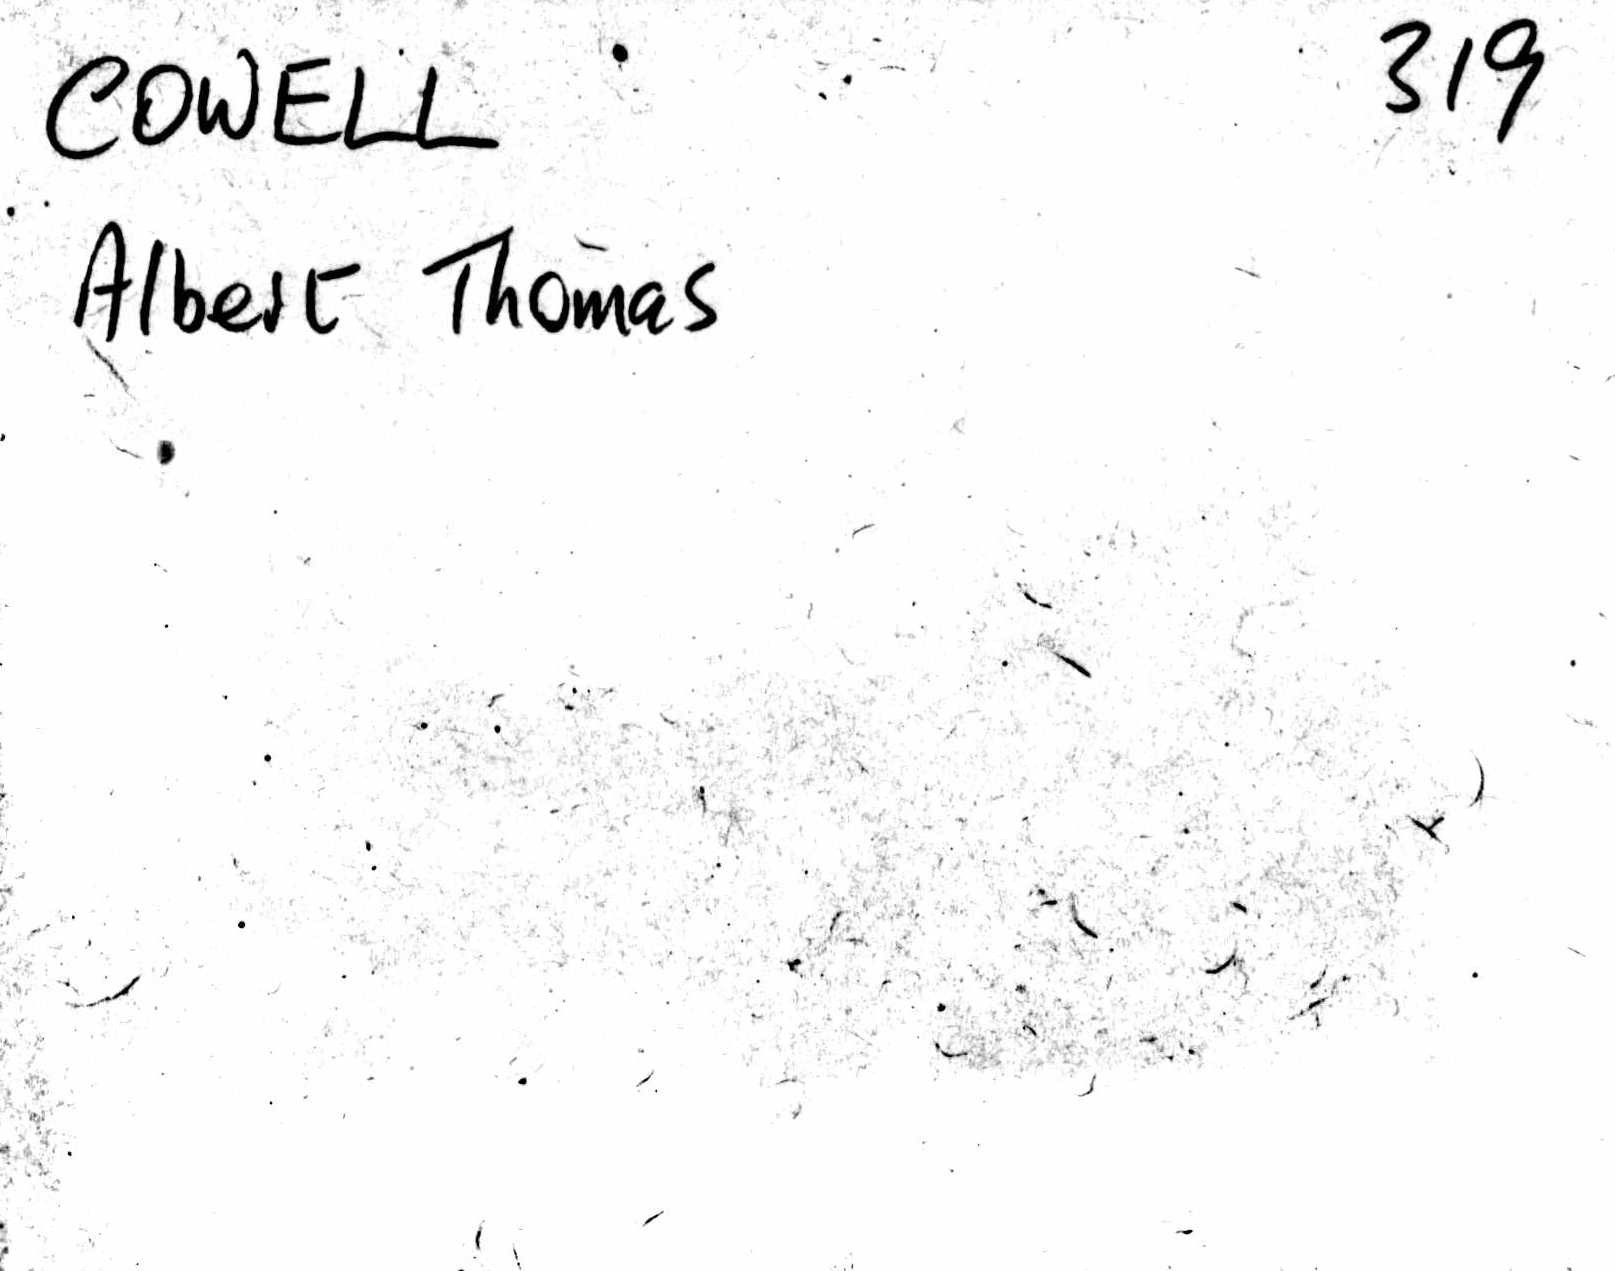 COWELL 319
Albert Thomas